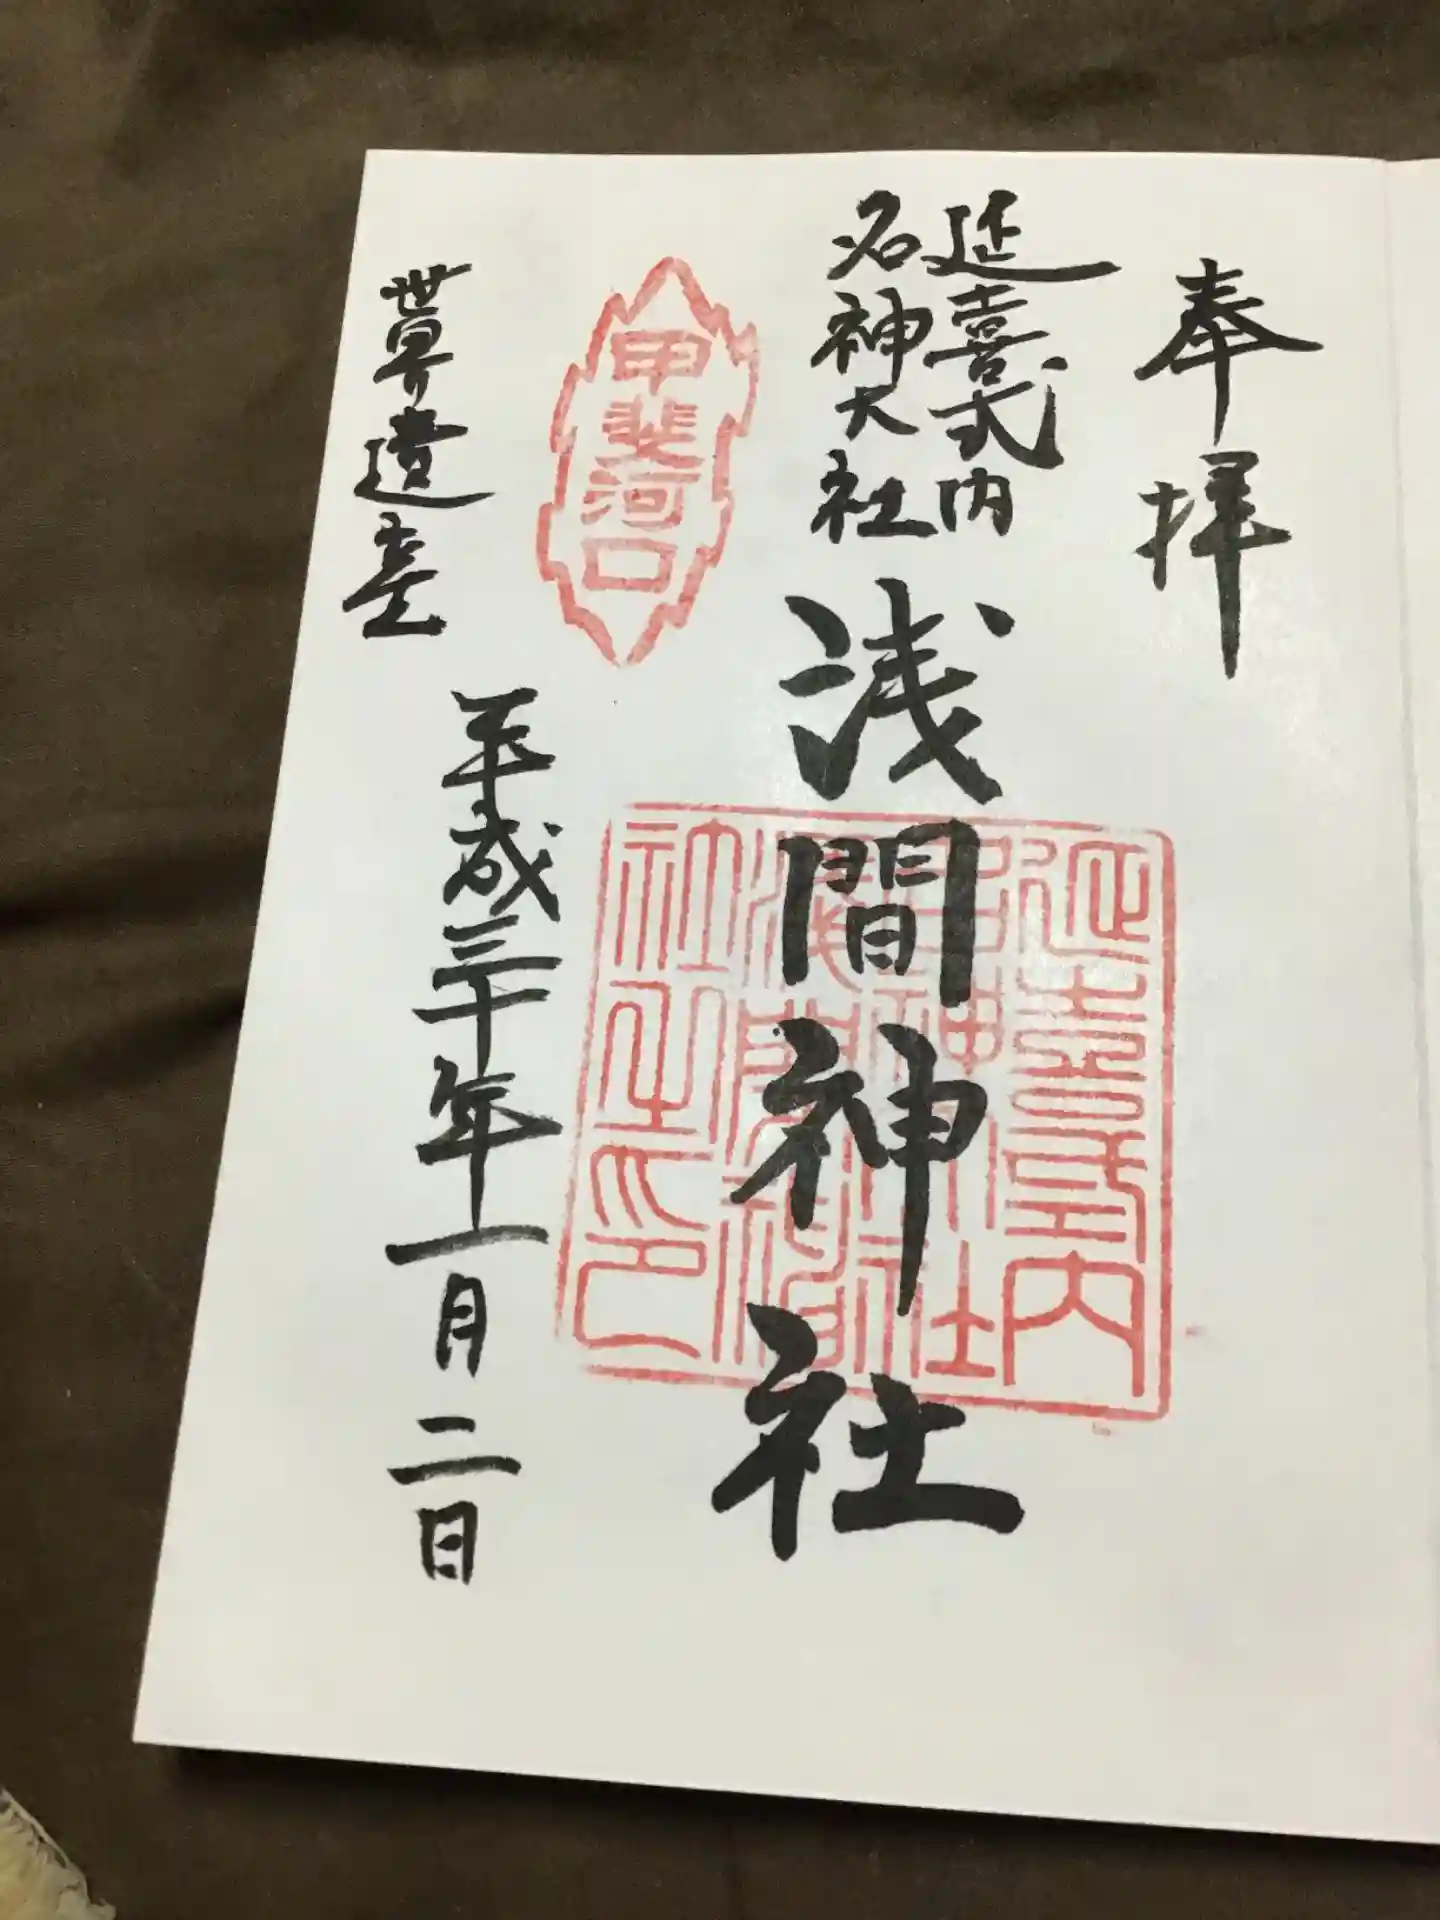 奉拝
延喜式内
名神大社
浅間神社
甲斐河口
延喜式内
名神大社
浅間神
社之印
世界遺産
平成三十年一月二日